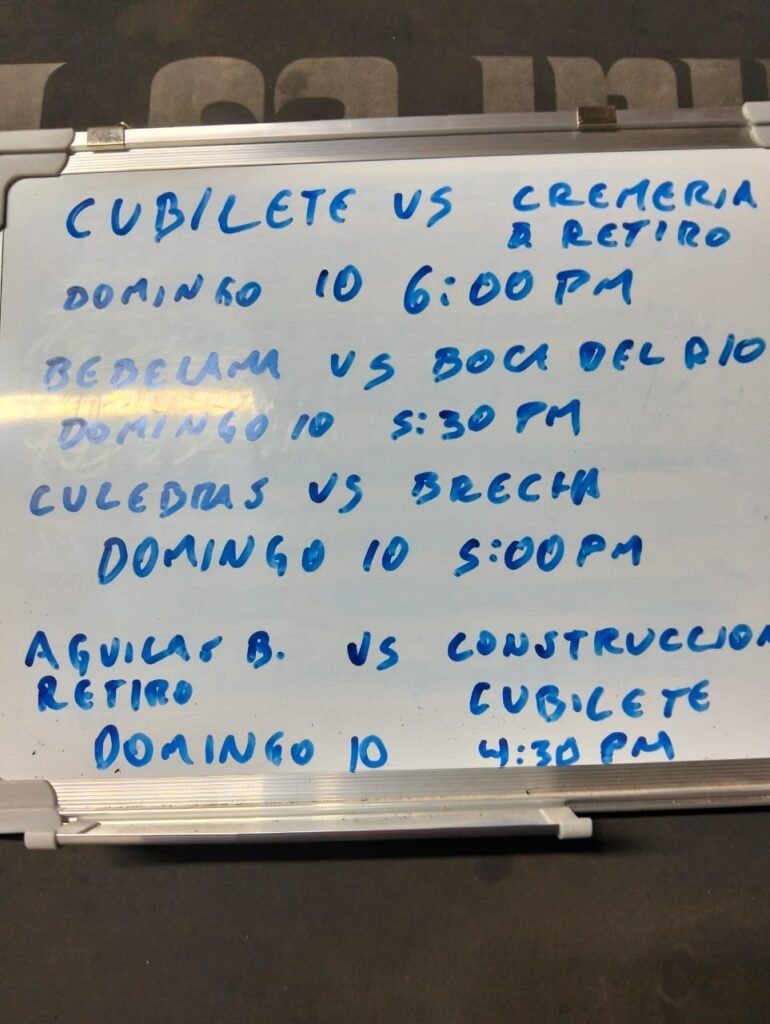 CUBILETE VS CREMERIA
RETIRO
DOMINGO 10 6:00 PM
VS BOCA DEL RIO
DOMINGO 10 5:30 PM
CULEBRAS VS BRECHA
DOMINGO 10 5:00 PM
AGUILAS B. VS CONSTRUCCION
RETIRO CUBILETE
DOMINGO 10 4:30 PM